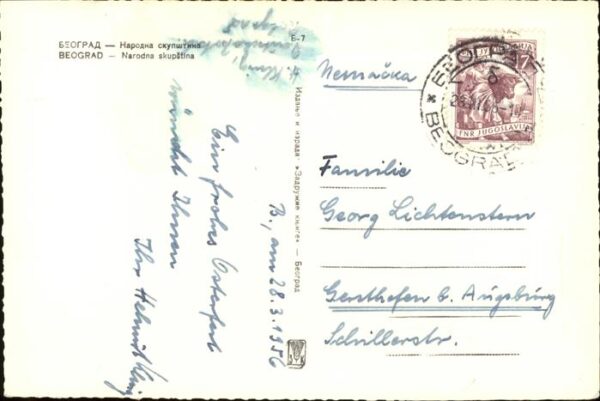 БЕОГРАД — Народна скупштина
BEOGRAD — Narodna skupština
Б-7
H. Klein,
Beograd
Издање и израда: »Задружне књиге« — Београд
B., am 28.3.1956
Ein frohes Osterfest
wünscht Ihnen
Ihr Helmut Klein
Nemačka
JUGOSLAVIJA
17
FNR JUGOSLAVIJA
БЕОГРАД
6
BEOGRAD
Familie
Georg Lichtenstern
Gersthofen b. Augsburg
Schillerstr.